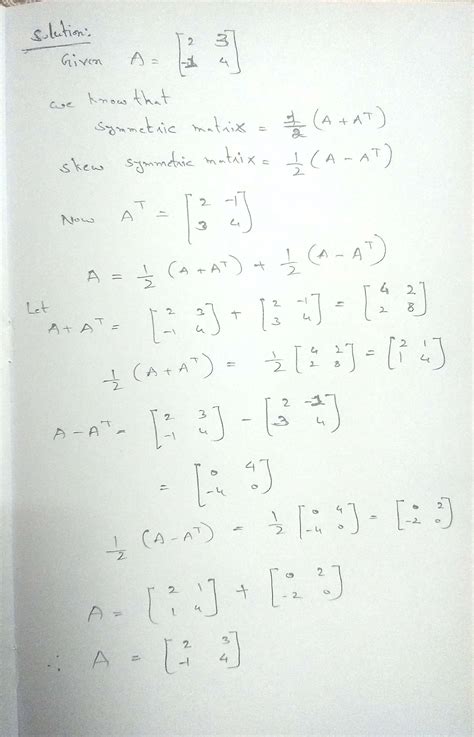 Solution:
Given A = [2 3; -1 4]
we know that
symmetric matrix = 1/2 (A + A^T)
skew symmetric matrix = 1/2 (A - A^T)
Now A^T = [2 -1; 3 4]
A = 1/2 (A + A^T) + 1/2 (A - A^T)
Let
A + A^T = [2 3; -1 4] + [2 -1; 3 4] = [4 2; 2 8]
1/2 (A + A^T) = 1/2 [4 2; 2 8] = [2 1; 1 4]
A - A^T = [2 3; -1 4] - [2 -1; 3 4]
= [0 4; -4 0]
1/2 (A - A^T) = 1/2 [0 4; -4 0] = [0 2; -2 0]
A = [2 1; 1 4] + [0 2; -2 0]
∴ A = [2 3; -1 4]